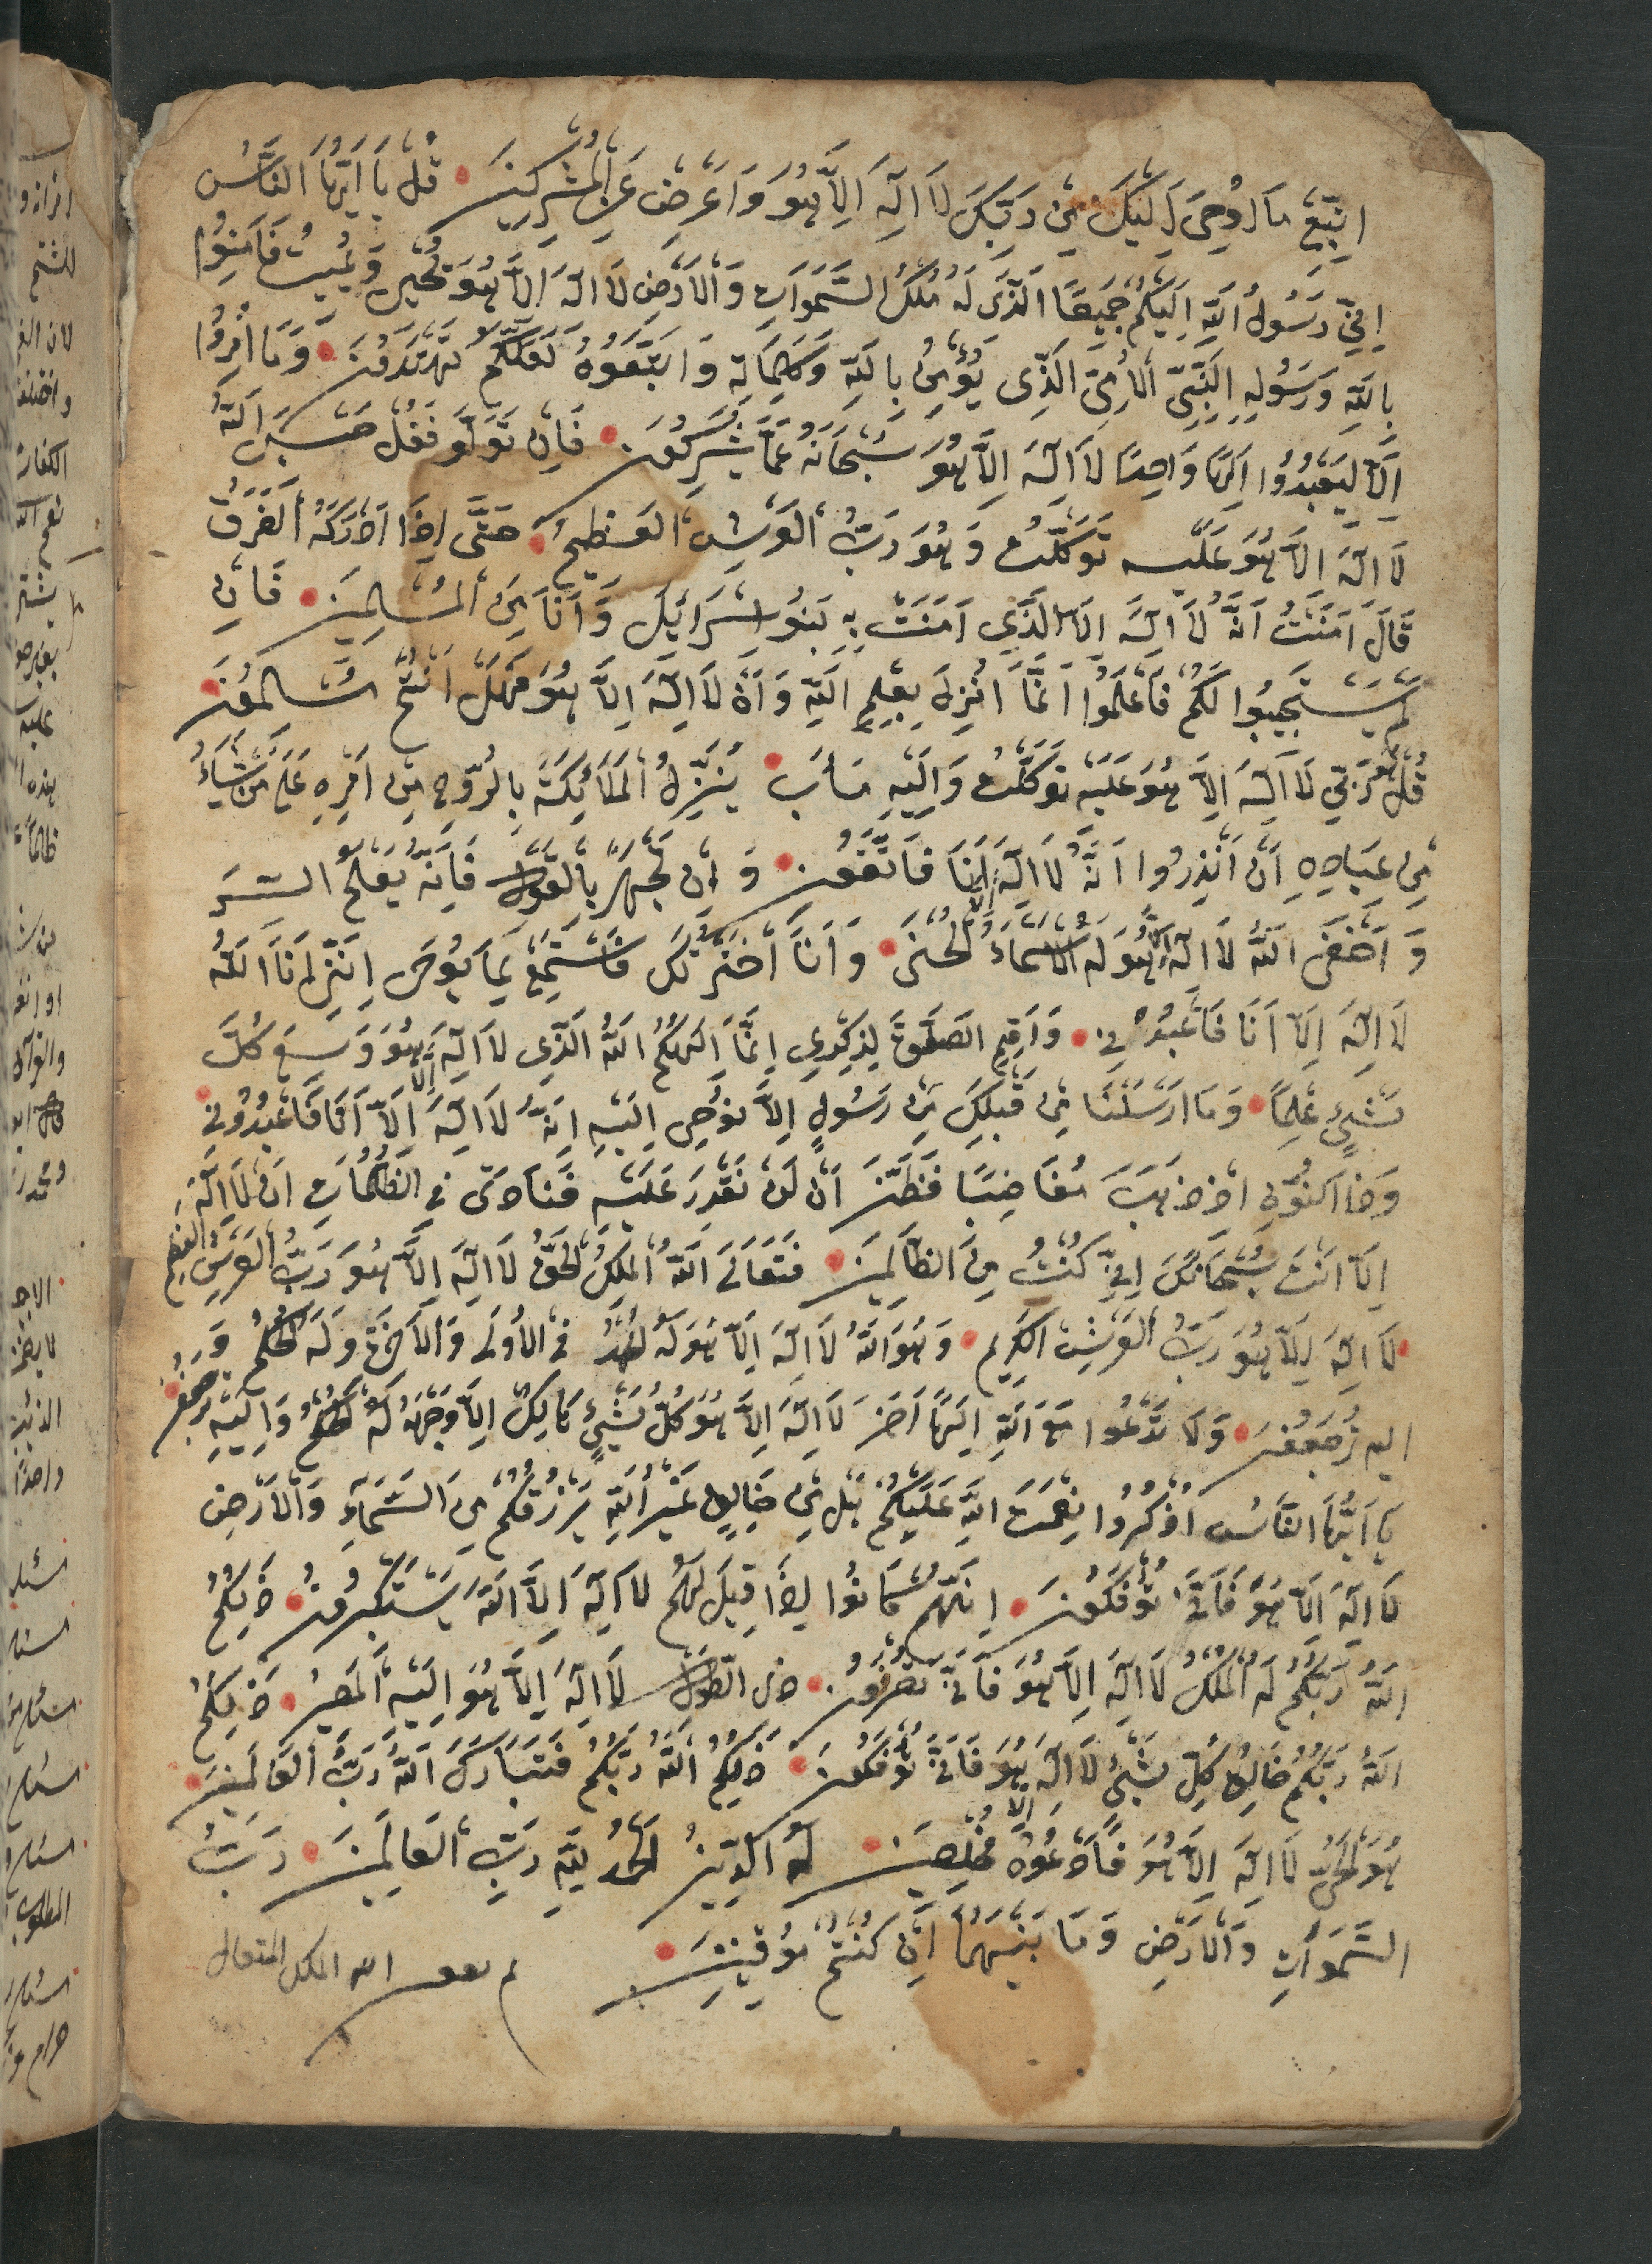 اتبع ما اوحي اليك من ربك لا اله الا هو واعرض عن المشركين قل يا ايها الناس
اني رسول الله اليكم جميعا الذي له ملك السموات والارض لا اله الا هو يحيي ويميت فامنوا
بالله ورسوله النبي الامي الذي يؤمن بالله وكلماته واتبعوه لعلكم تهتدون وما امروا
الا ليعبدوا الها واحدا لا اله الا هو سبحانه عما يشركون فان تولو فقل حسبي الله
لا اله الا هو عليه توكلت وهو رب العرش العظيم حتى اذا ادركه الغرق
قال امنت انه لا اله الا الذي امنت به بنو اسرائيل وانا من المسلمين فان
لم يستجيبوا لكم فاعلموا انما انزل بعلم الله وان لا اله الا هو فهل انتم مسلمون
قل هو ربي لا اله الا هو عليه توكلت واليه متاب ينزل الملائكة بالروح من امره على من يشاء
من عباده ان انذروا انه لا اله الا انا فاتقون وان تجهر بالقول فانه يعلم السر
واخفى الله لا اله الا هو له الاسماء الحسنى وانا اخترتك فاستمع لما يوحى انني انا الله
لا اله الا انا فاعبدني واقم الصلوة لذكري انما الهكم الله الذي لا اله الا هو وسع كل
شيئ علما وما ارسلنا من قبلك من رسول الا نوحي اليه انه لا اله الا انا فاعبدون
وذا النون اذ ذهب مغاضبا فظن ان لن نقدر عليه فنادى في الظلمات ان لا اله
الا انت سبحانك اني كنت من الظالمين فتعالى الله الملك الحق لا اله الا هو رب العرش العظيم
لا اله الا هو رب العرش الكريم وهو الله لا اله الا هو له الحمد في الاولى والاخرة وله الحكم و
اليه ترجعون ولا تدعوا مع الله الها اخر لا اله الا هو كل شيئ هالك الا وجهه له الحكم واليه ترجعون
يا ايها الناس اذكروا نعمت الله عليكم هل من خالق غير الله يرزقكم من السماء والارض
لا اله الا هو فانى تؤفكون انهم كانوا اذا قيل لهم لا اله الا الله يستكبرون ذلكم
الله ربكم له الملك لا اله الا هو فانى تصرفون ذى الطول لا اله الا هو اليه المصير ذلكم
الله ربكم خالق كل شيئ لا اله الا هو فانى تؤفكون ذلكم الله ربكم فتبارك الله رب العالمين
هو الحي لا اله الا هو فادعوه مخلصين له الدين الحمد لله رب العالمين رب
السموات والارض وما بينهما ان كنتم موقنين
تم بعون الله الملك المتعال